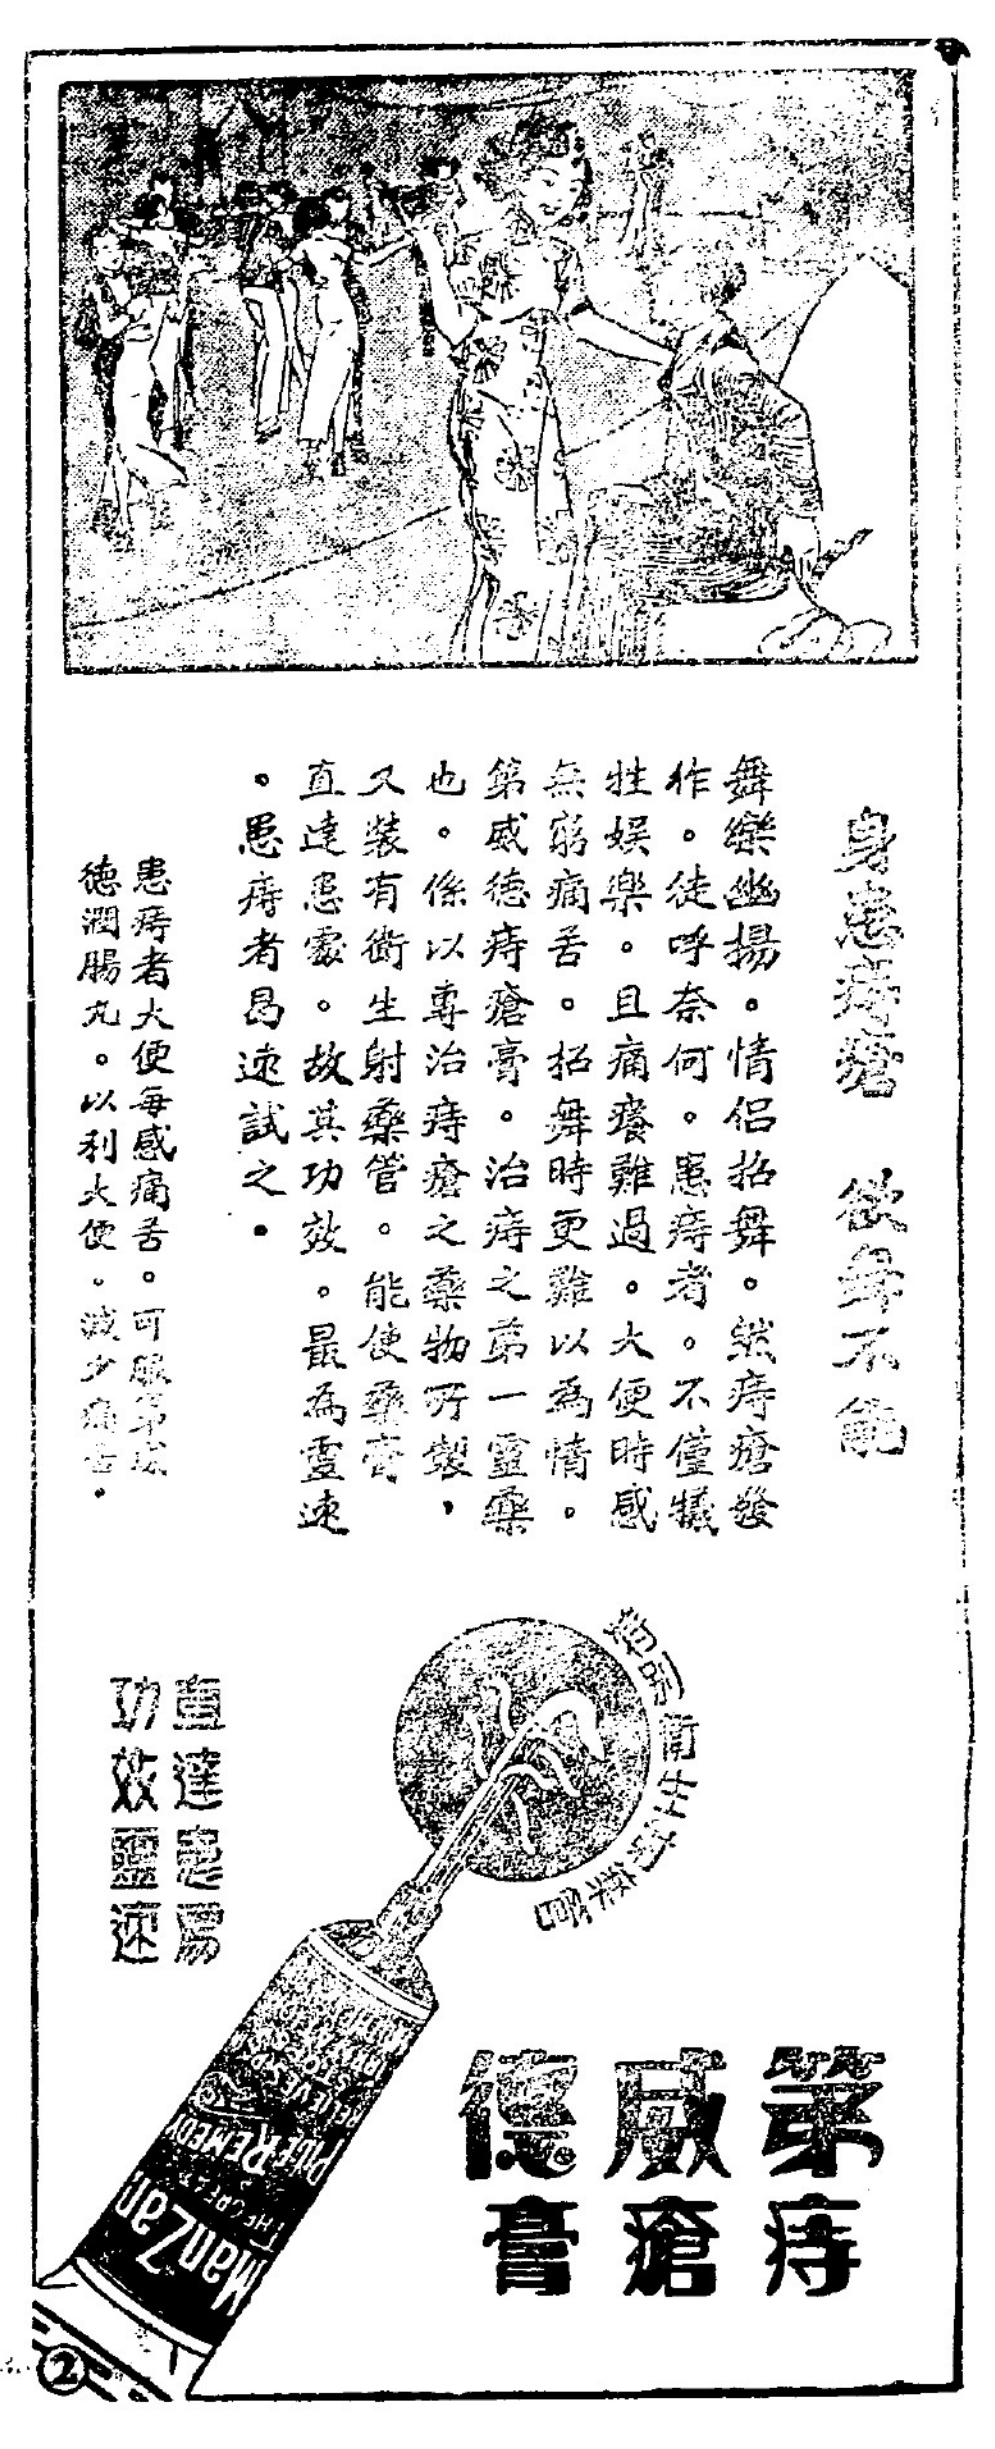 身患痔瘡 欲舞不能
舞樂幽揚。情侶招舞。然痔瘡發
作。徒呼奈何。患痔者。不僅犧
牲娛樂。且痛癢難過。大便時感
無窮痛苦。招舞時更難以為情。
第威德痔瘡膏。治痔之第一靈藥
也。係以專治痔瘡之藥物所製，
又裝有衛生射藥管。能使藥膏
直達患處。故其功效。最為靈速
。患痔者曷速試之。
患痔者大便每感痛苦。可服第威
德潤腸丸。以利大便。減少痛苦。
衛生射藥管
直達患處
功效靈速
第威德
痔瘡膏
ManZan
THE GREAT
PILE REMEDY
RELIEVES
2